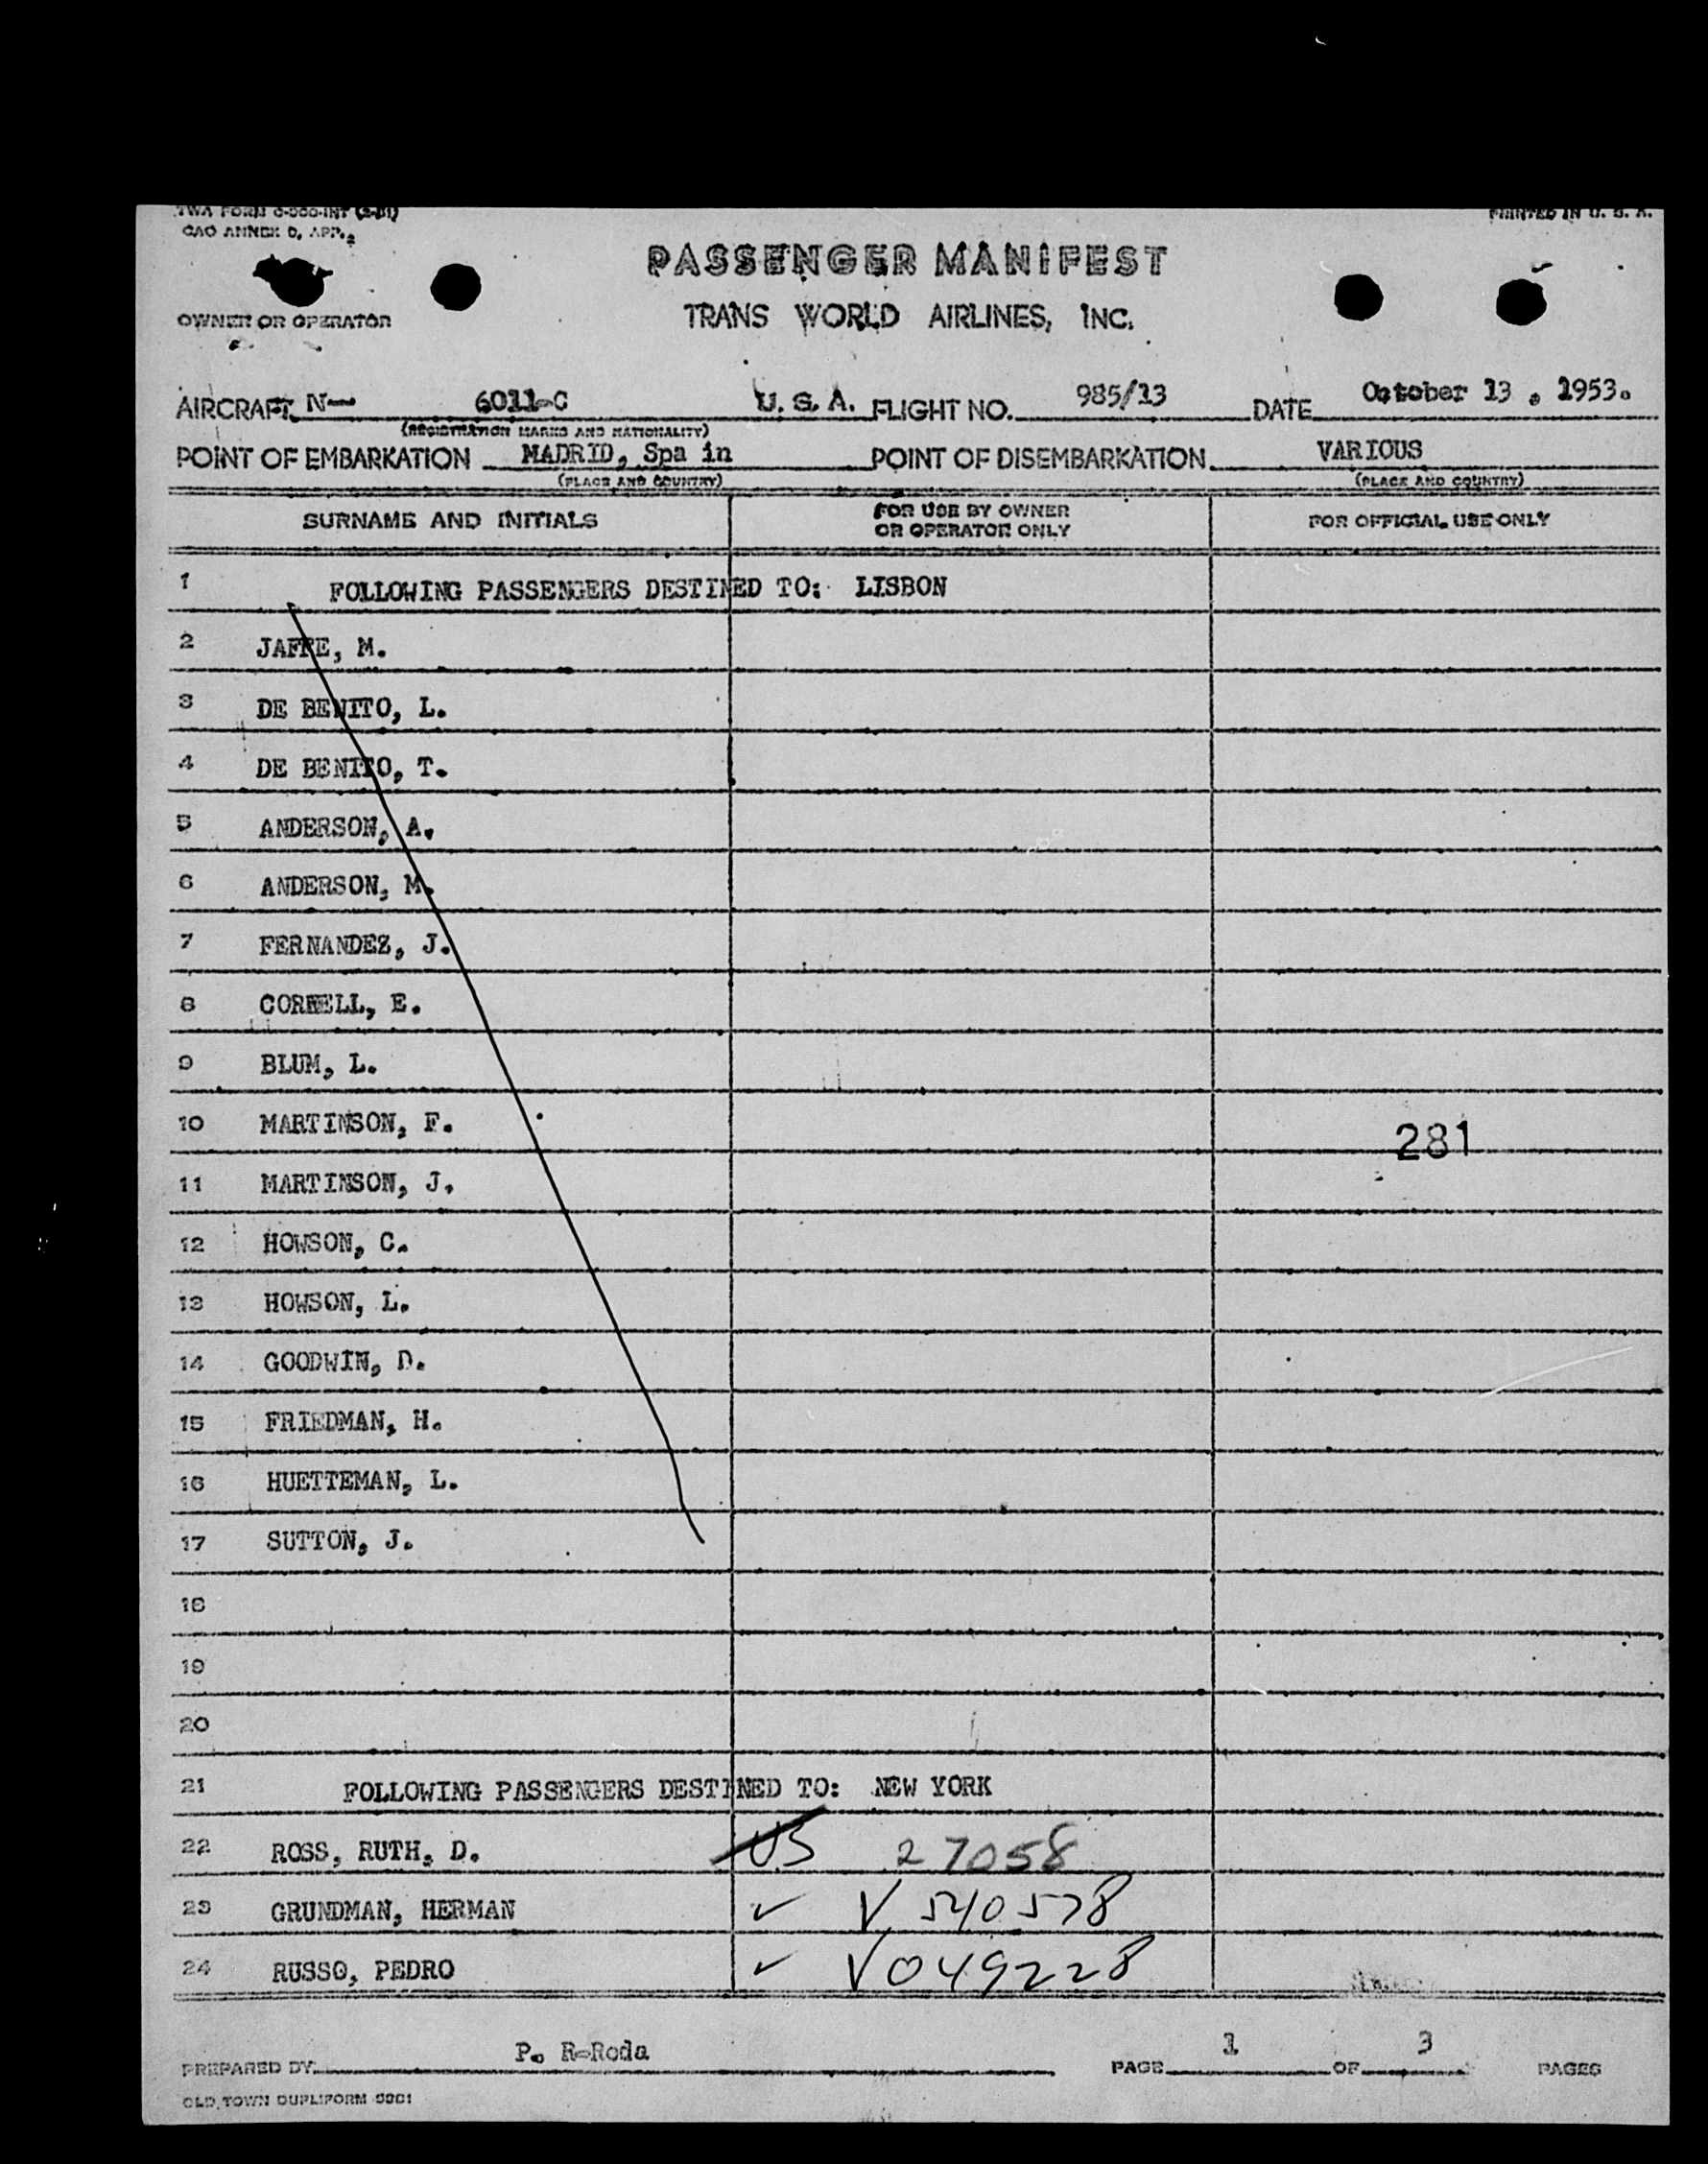 TWA FORM
CAO ANNEX D, APP. 2
PRINTED IN U. S. A.
PASSENGER MANIFEST
TRANS WORLD AIRLINES, INC.
OWNER OR OPERATOR
AIRCRAFT N- 6011-C U. S. A. FLIGHT NO. 985/13 DATE October 13 . 1953.
(REGISTRATION MARKS AND NATIONALITY)
POINT OF EMBARKATION MADRID, Spa in POINT OF DISEMBARKATION VARIOUS
(PLACE AND COUNTRY) (PLACE AND COUNTRY)
SURNAME AND INITIALS FOR USE BY OWNER OR OPERATOR ONLY FOR OFFICIAL USE ONLY
1 FOLLOWING PASSENGERS DESTINED TO: LISBON
2 JAFFE, M.
3 DE BENITO, L.
4 DE BENITO, T.
5 ANDERSON, A.
6 ANDERSON, M.
7 FERNANDEZ, J.
8 CORNELL, E.
9 BLUM, L.
10 MARTINSON, F.
281
11 MARTINSON, J.
12 HOWSON, C.
13 HOWSON, L.
14 GOODWIN, D.
15 FRIEDMAN, H.
16 HUETTEMAN, L.
17 SUTTON, J.
18
19
20
21 FOLLOWING PASSENGERS DESTINED TO: NEW YORK
22 ROSS, RUTH, D. US 27058
23 GRUNDMAN, HERMAN ✓ V 540578
24 RUSSO, PEDRO ✓ V049228
PREPARED BY: P. R-Roda PAGE 1 OF 3 PAGES
OLD TOWN DUPLIFORM